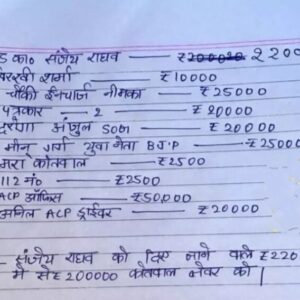 ड का० संजय राघव — ₹200020 2200
शर्मा — ₹10000
चौकी ईनचार्ज नीमका — ₹25000
पत्रकार — 2 — ₹20000
दरोगा अंजुल SOG — ₹20000
मोनू गर्ग युवा नेता BJP — ₹25000
मरा कोतवाल — ₹2500
112 नं० — ₹2500
ACP ऑफिस — ₹50,000
अनिल ACP ड्राईवर — ₹20000
- संजय राघव को दिए जाने वाले ₹220
में से ₹200000 कोतवाल जेवर को |